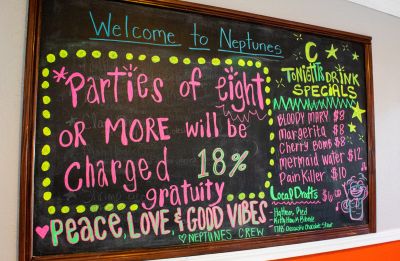 Welcome to Neptunes
*Parties of eight
OR MORE will be
Charged 18%
gratuity
PEACE, LOVE, & GOOD VIBES
NEPTUNES CREW
TONIGHT'S DRINK
SPECIALS
BLOODY MARY $8
Margerita $8
Cherry Bomb $8
mermaid water $12
Pain Killer $10
Local Drafts $6